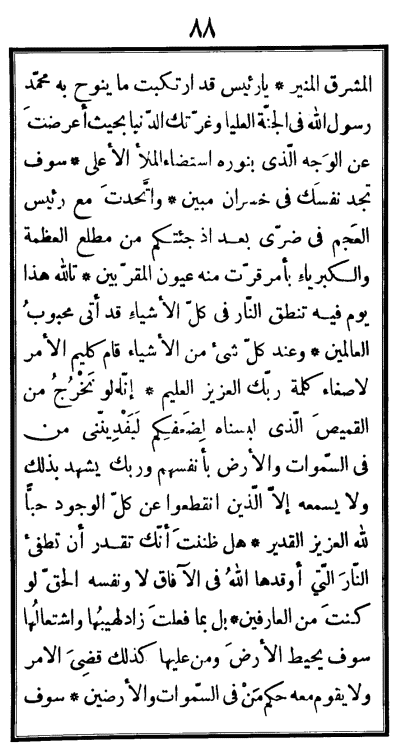 ٨٨
المشرق المنير * يا رئيس قد ارتكبت ما ينوح به محمّد
رسول الله فى الجنّة العليا وغرّتك الدّنيا بحيث أعرضتَ
عن الوَجه الّذى بنوره استضاء الملأ الأعلى * سوف
تجد نفسَك فى خسران مبين * واتَّحدتَ مع رئيس
العَجم فى ضرّى بعد اذ جئتكم من مطلع العظمة
والكبرياء بأمر قرّت منه عيون المقرّبين * تالله هذا
يوم فيه تنطق النّار فى كلّ الأشياءِ قد أتى محبوبُ
العالمين * وعند كلّ شئ من الأشياء قام كليم الأمر
لاصغاء كلمة ربّك العزيز العليم * إنّا لو نَخْرُجُ من
القميصَ الّذى لبسناه لِضَعفِكم لَيَفْدِيَنّنى من
فى السّموات والأرض بأنفسهم وربك يشهد بذلك
ولا يسمعه إلاّ الّذين انقطعوا عن كلّ الوجود حبّاً
لله العزيز القدير * هل ظننتَ أنّك تقدر أن تطفئ
النّارَ الّتى أوقدها اللهُ فى الآفاق لا ونفسه الحقّ لو
كنتَ من العارفين * بل بما فعلتَ زاد لهيبُها واشتعالُها
سوف يحيط الأرضَ ومن عليها كذلك قضِىَ الامر
ولا يقوم معه حكم مَنْ فى السّموات والأرضين * سوف